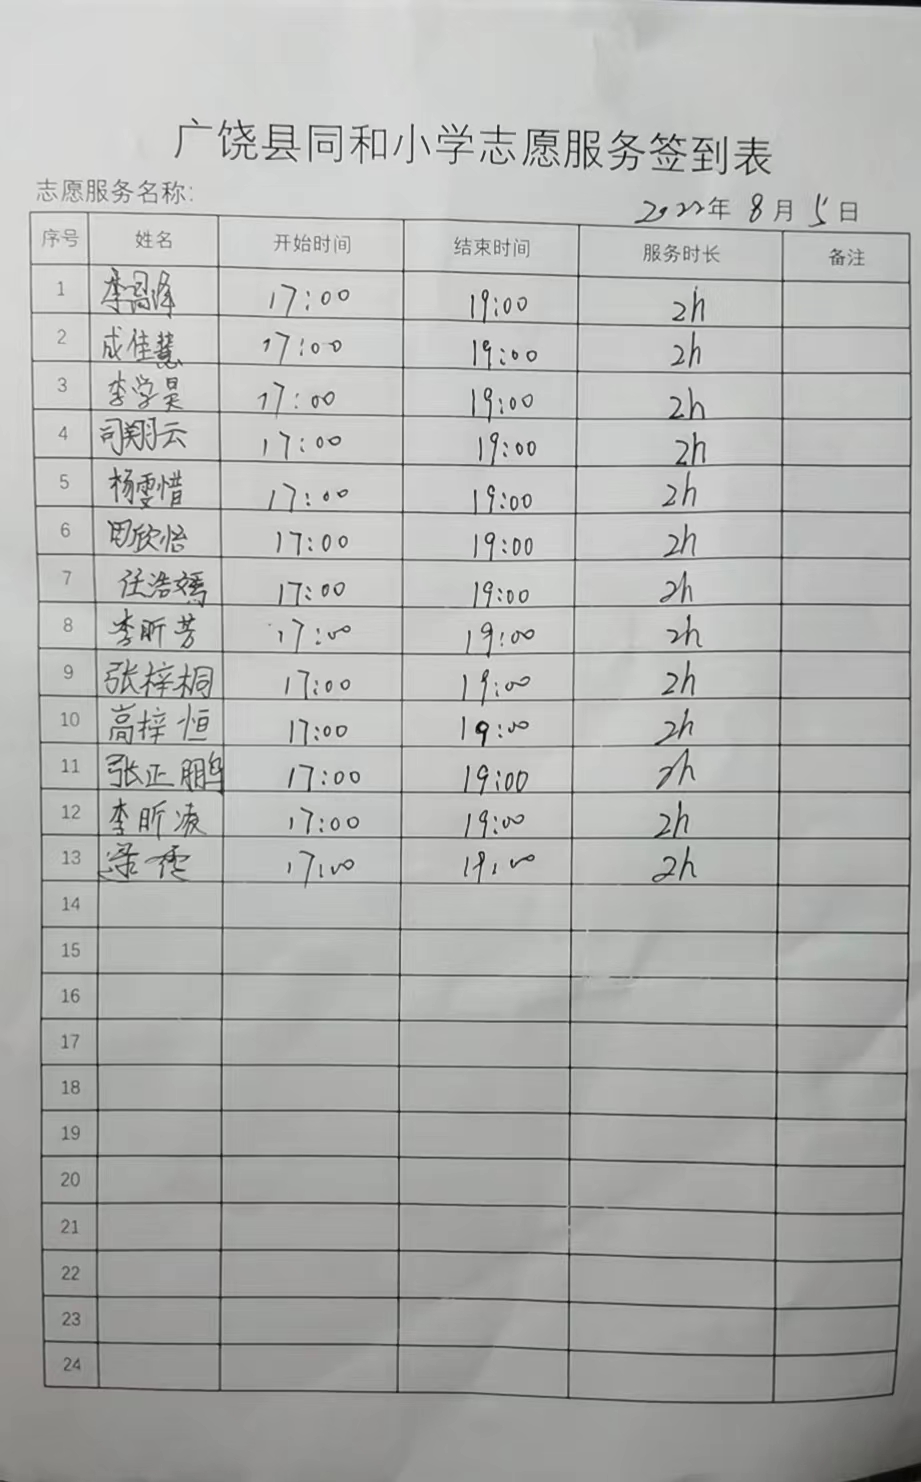 广饶县同和小学志愿服务签到表
志愿服务名称:
2022年 8月 5日
序号 姓名 开始时间 结束时间 服务时长 备注
1 17:00 19:00 2h
2 成佳慧 17:00 19:00 2h
3 李学昊 17:00 19:00 2h
4 司翔云 17:00 19:00 2h
5 杨雯惜 17:00 19:00 2h
6 田欣怡 17:00 19:00 2h
7 任浩嫣 17:00 19:00 2h
8 李昕芳 17:00 19:00 2h
9 张梓桐 17:00 19:00 2h
10 高梓恒 17:00 19:00 2h
11 张正鹏 17:00 19:00 2h
12 李昕凌 17:00 19:00 2h
13 17:00 19:00 2h
14
15
16
17
18
19
20
21
22
23
24